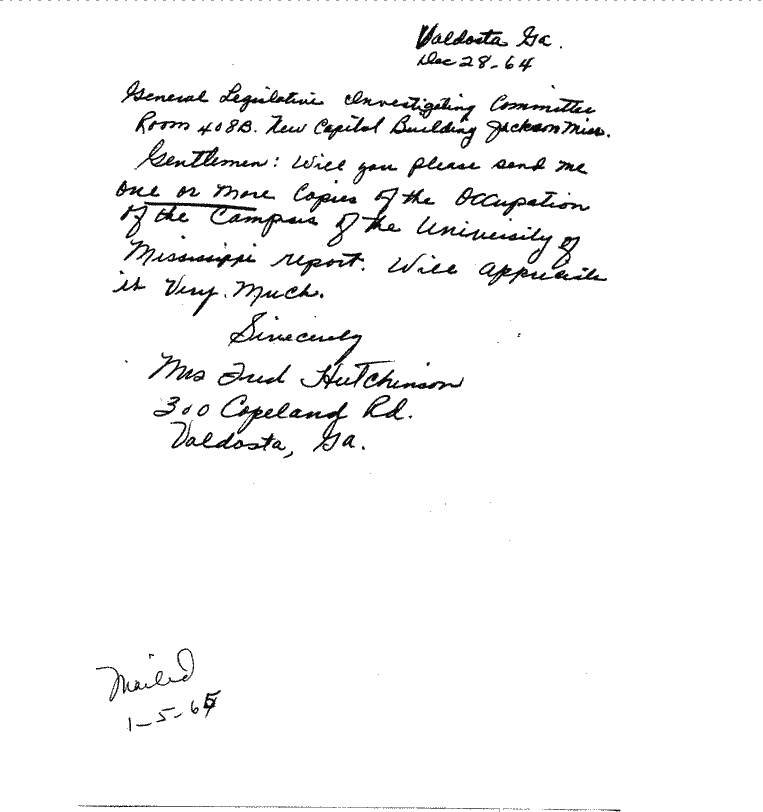 Valdosta Ga.
Dec 28-64
General Legislative Investigating Committee
Room 408B. New Capitol Building Jackson Miss.
Gentlemen: Will you please send me
one or more Copies of the Occupation
of the Campus of the University of
Mississippi report. Will appreciate
it Very Much.
Sincerely
Mrs Fred Hutchinson
300 Copeland Rd.
Valdosta, Ga.
Mailed
1-5-65